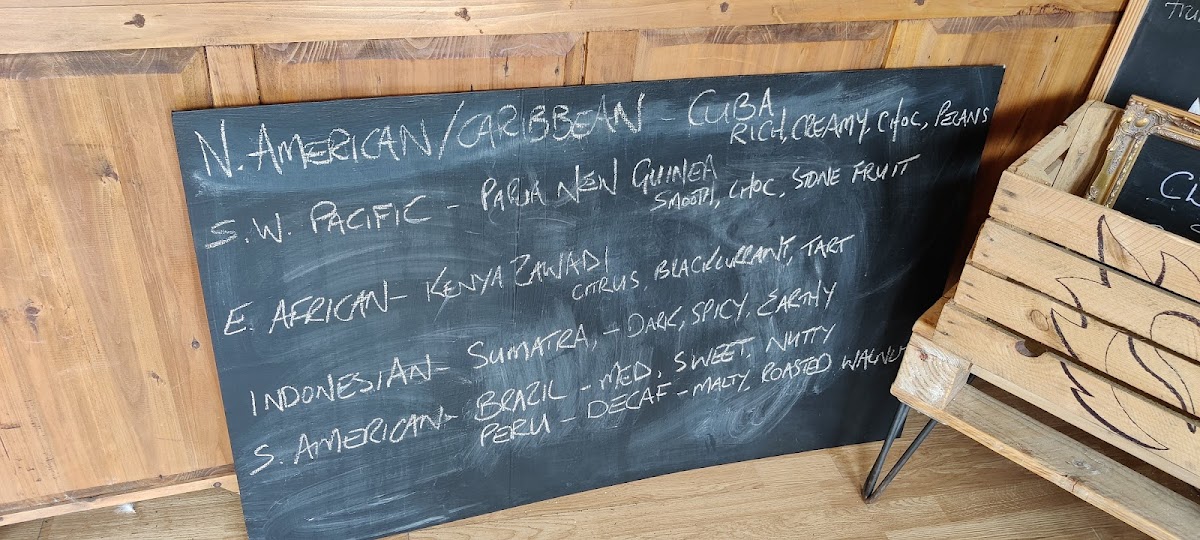 N. AMERICAN/CARIBBEAN - CUBA
RICH, CREAMY, CHOC, PECANS
S.W. PACIFIC - PAPUA NEW GUINEA
SMOOTH, CHOC, STONE FRUIT
E. AFRICAN - KENYA ZAWADI
CITRUS, BLACKCURRANT, TART
INDONESIAN - SUMATRA, - DARK, SPICY, EARTHY
S. AMERICAN - BRAZIL - MED, SWEET, NUTTY
PERU - DECAF - MALTY, ROASTED WALNUT